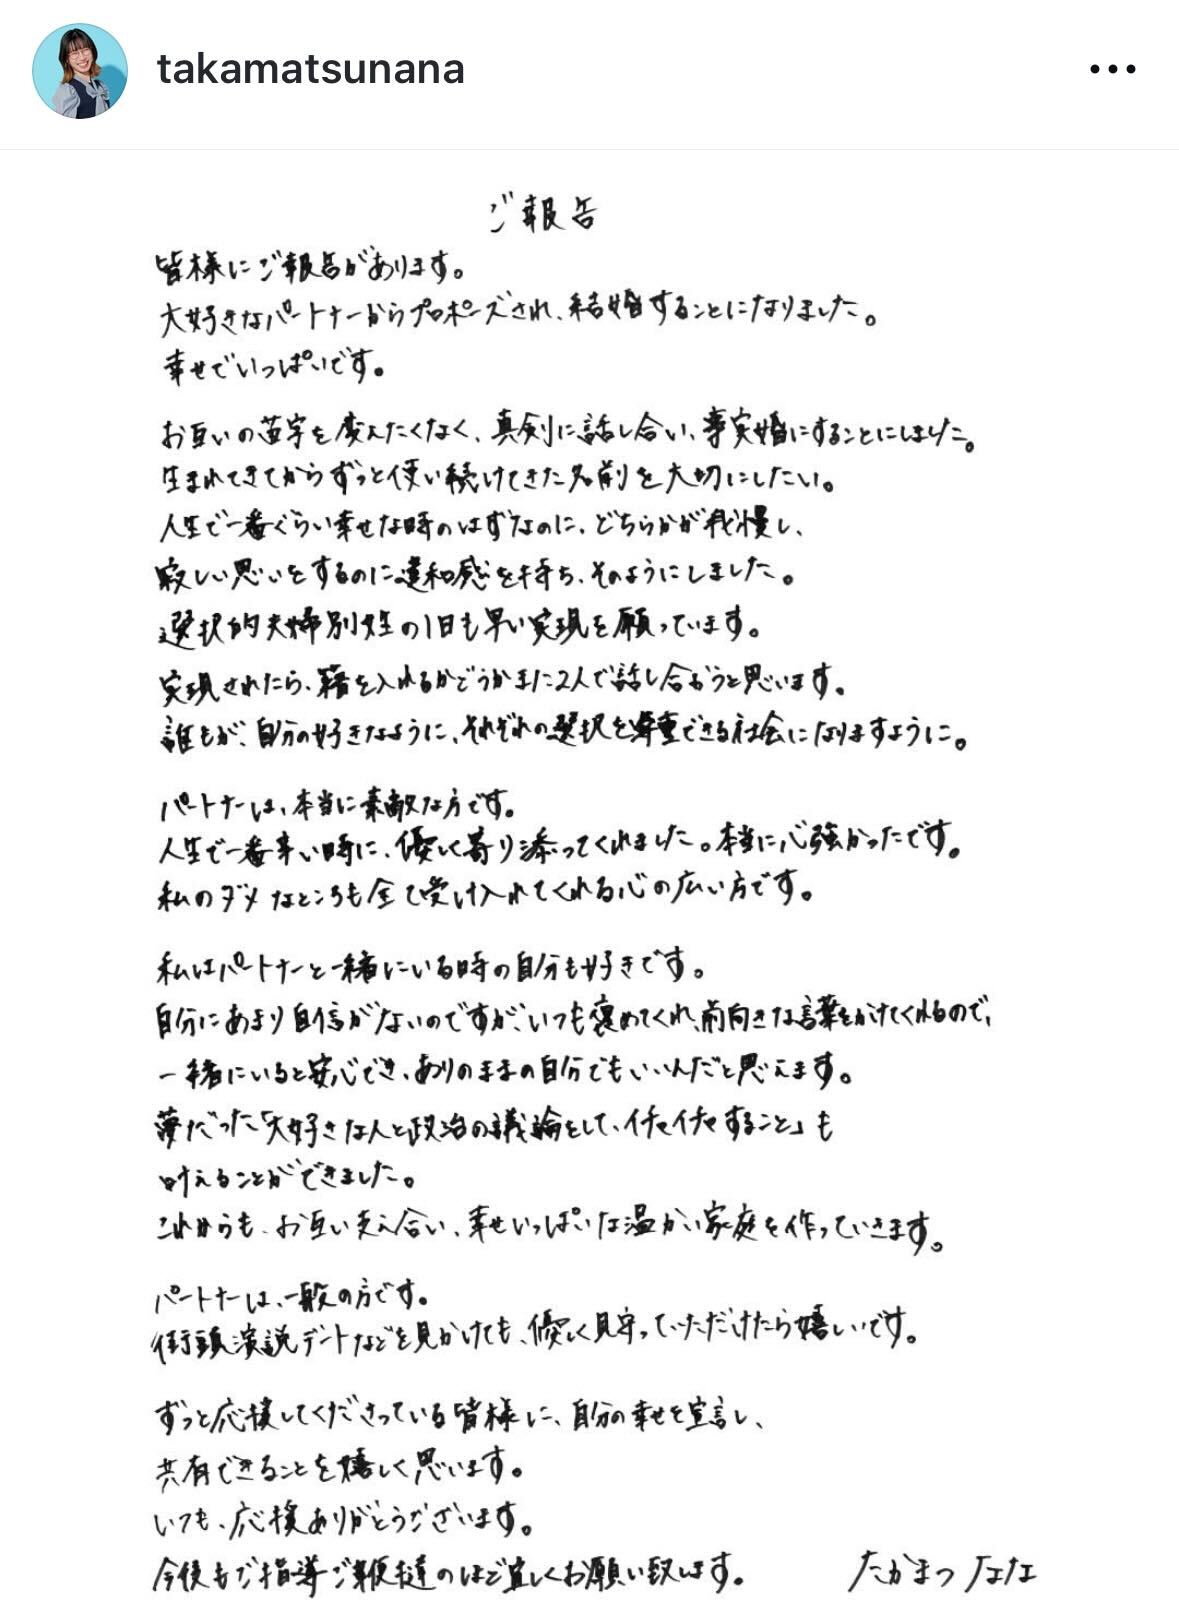 takamatsunana
ご報告
皆様にご報告があります。
大好きなパートナーからプロポーズされ、結婚することになりました。
幸せでいっぱいです。
お互いの苗字を変えたくなく、真剣に話し合い、事実婚にすることにしました。
生まれてきてからずっと使い続けてきた名前を大切にしたい。
人生で一番ぐらい幸せな時のはずなのに、どちらかが我慢し、
寂しい思いをするのに違和感を持ち、そのようにしました。
選択的夫婦別姓の1日も早い実現を願っています。
実現されたら、籍を入れるかどうかまた2人で話し合おうと思います。
誰もが、自分の好きなように、それぞれの選択を尊重できる社会になりますように。
パートナーは、本当に素敵な方です。
人生で一番辛い時に、優しく寄り添ってくれました。本当に心強かったです。
私のダメなところも全て受け入れてくれる心の広い方です。
私はパートナーと一緒にいる時の自分も好きです。
自分にあまり自信がないのですが、いつも褒めてくれ、前向きな言葉をかけてくれるので、
一緒にいると安心でき、ありのままの自分でもいいんだと思えます。
夢だった「大好きな人と政治の議論をして、イチャイチャすること」も
叶えることができました。
これからも、お互い支え合い、幸せいっぱいな温かい家庭を作っていきます。
パートナーは、一般の方です。
街頭演説デートなどを見かけても、優しく見守っていただけたら嬉しいです。
ずっと応援してくださっている皆様に、自分の幸せを宣言し、
共有できることを嬉しく思います。
いつも、応援ありがとうございます。
今後もご指導ご鞭撻のほど宜しくお願い致します。 たかまつ なな